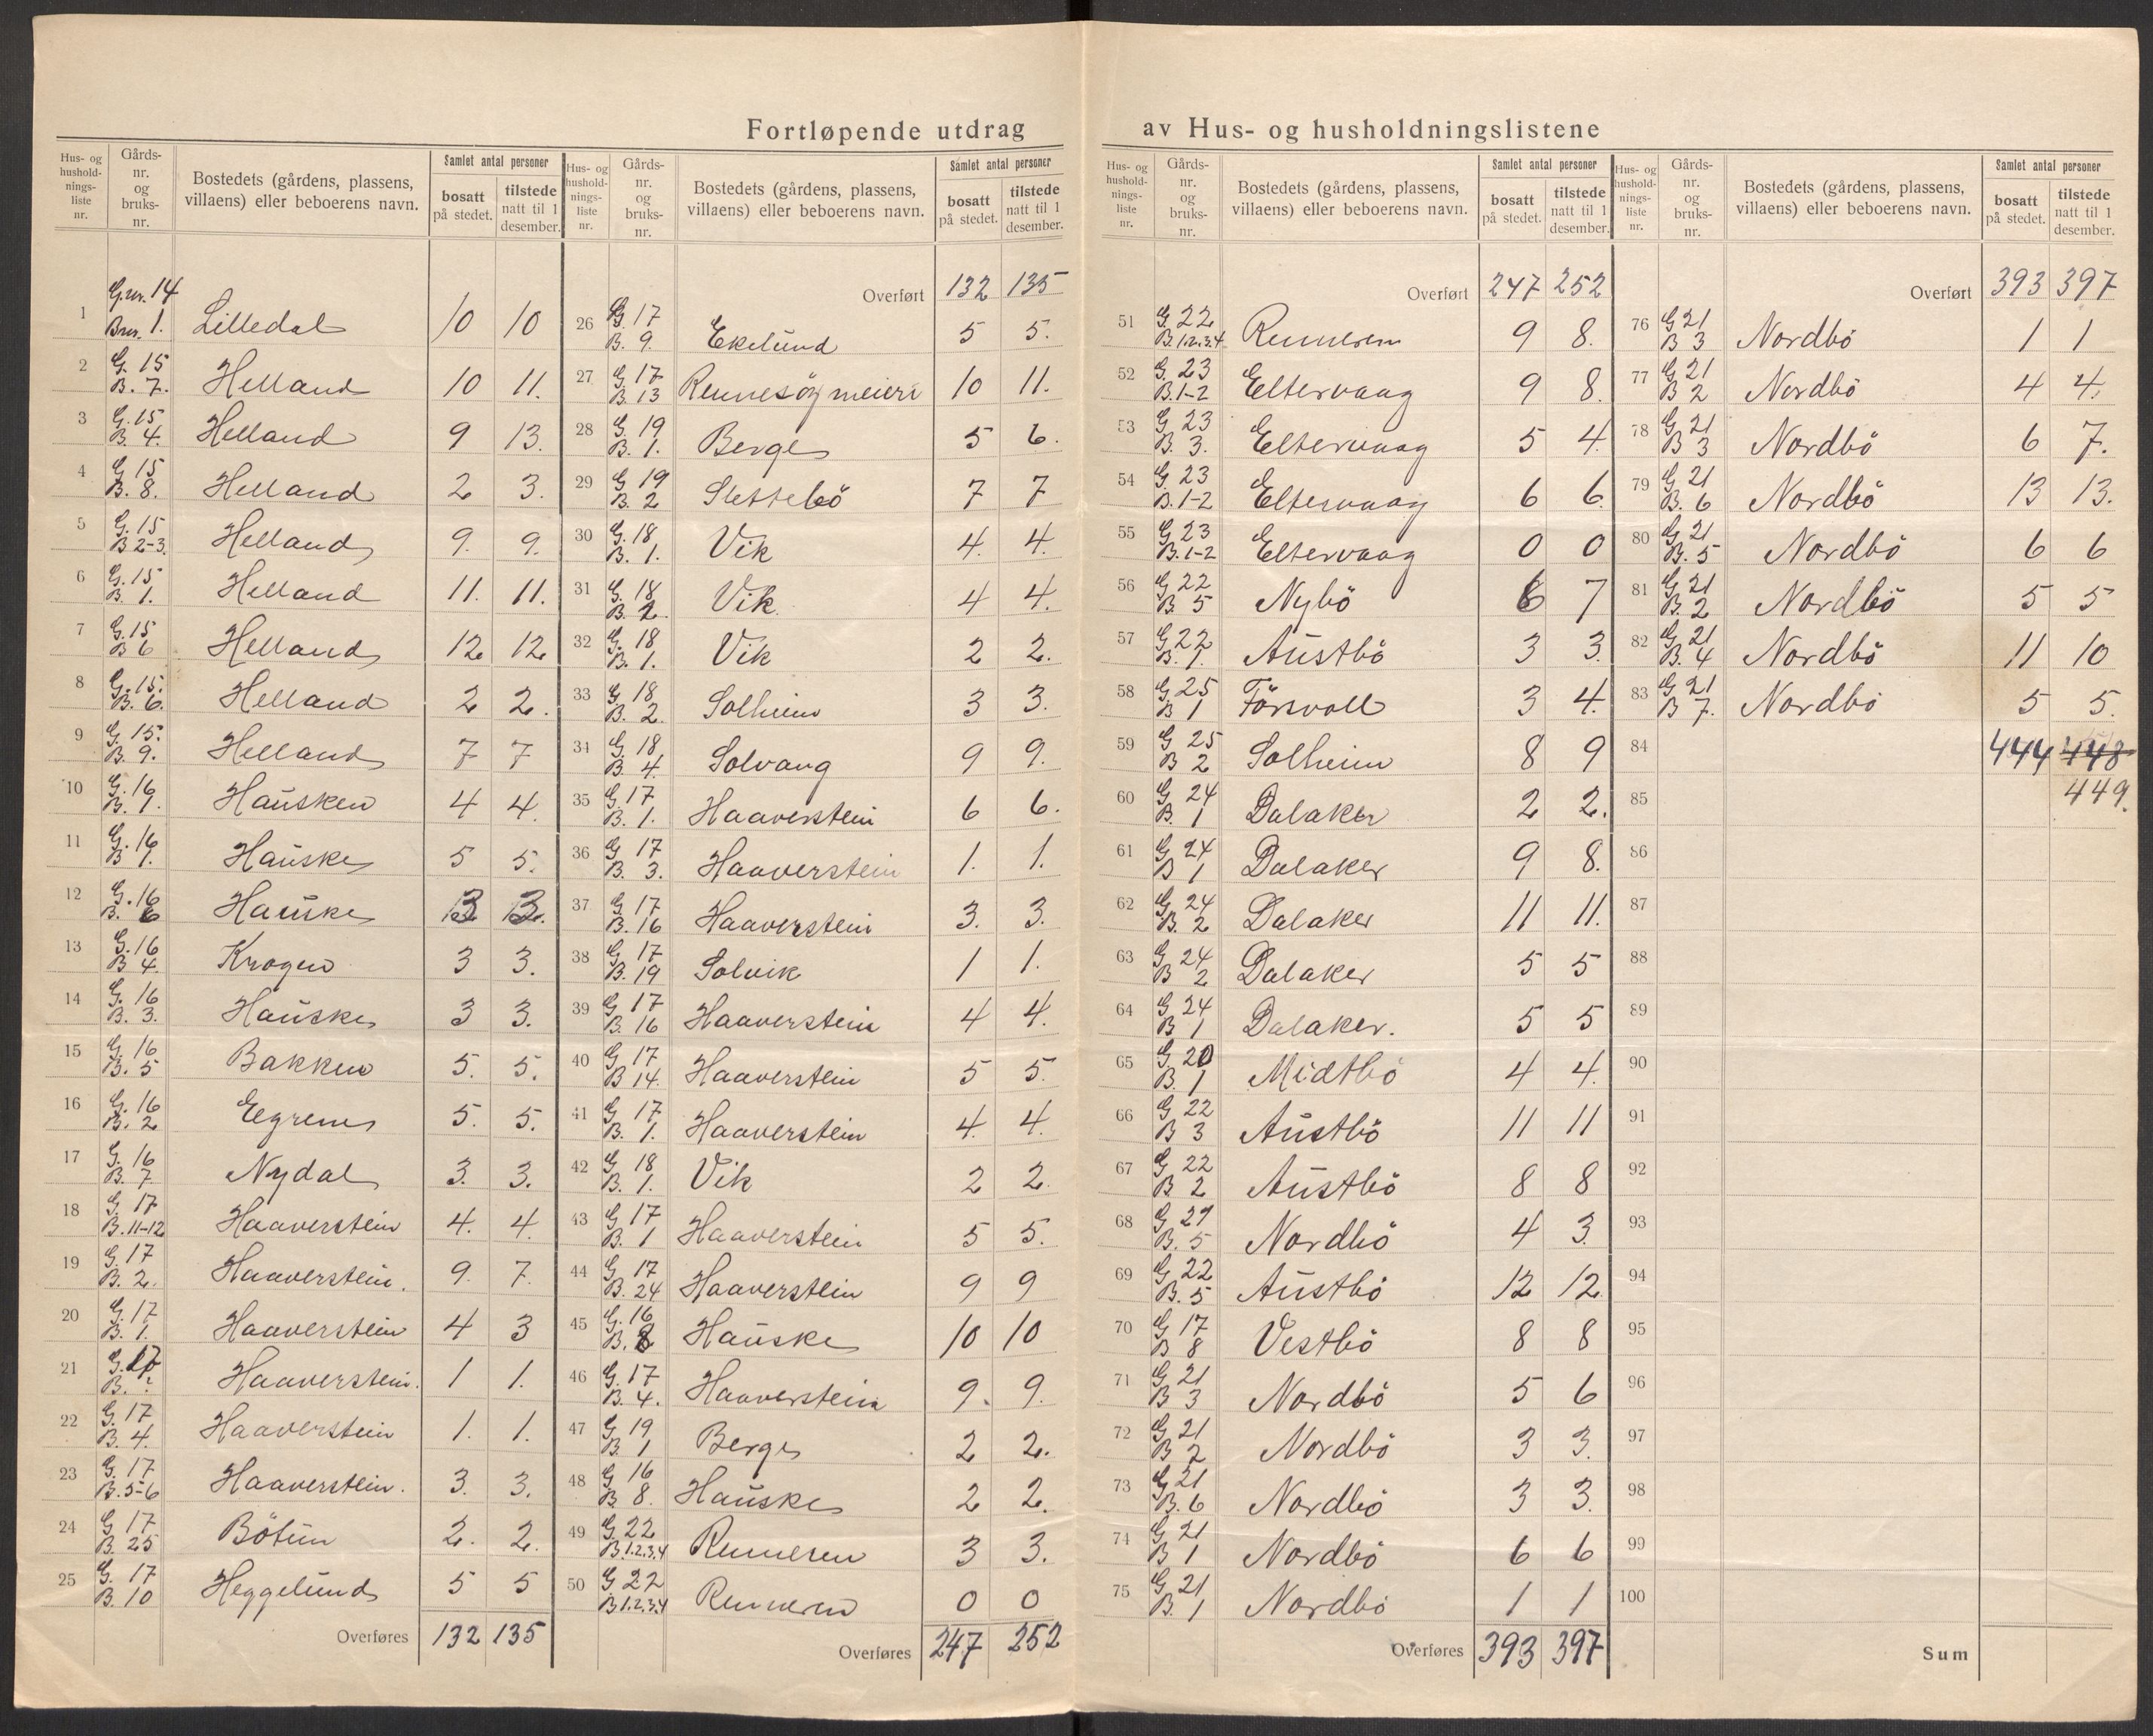 Fortløpende utdrag av Hus- og husholdningslistene
Hus- og hushold-nings-liste nr. | Gårds-nr. og bruks-nr. | Bostedets (gårdens, plassens, villaens) eller beboerens navn. | Samlet antal personer: bosatt på stedet. | tilstede natt til 1 desember.
1 G.nr. 14 B.nr. 1. Lilledal 10 10
2 G. 15 B. 7. Helland 10 11.
3 G. 15 B. 4. Helland 9 13.
4 G 15 B. 8. Helland 2 3.
5 G. 15 B 2-3. Helland 9. 9.
6 G. 15 B. 1. Helland 11. 11.
7 G. 15 B 6 Helland 12 12
8 G. 15. B. 6. Helland 2 2.
9 G. 15. B. 9. Helland 7 7
10 G. 16 B. 1. Hausken 4 4.
11 G. 16 B 1. Hauske 5 5.
12 G. 16 B. 6 Hauske 3 3.
13 G. 16 B 4. Krogen 3 3.
14 G. 16 B. 3. Hauske 3 3.
15 G. 16 B. 5 Bakken 5. 5.
16 G. 16 B. 2 Egrene 5. 5.
17 G. 16 B. 7 Nydal 3. 3.
18 G. 17 B. 11-12 Haaverstein 4. 4.
19 G. 17 B. 2. Haaverstein. 9. 7.
20 G. 17 B. 1. Haaverstein 4 3
21 G. 17 B. ? Haaverstein. 1 1.
22 G. 17 B. 4. Haaverstein 1. 1.
23 G. 17 B. 5-6 Haaverstein. 3. 3.
24 G 17 B. 25 Bötun 2. 2.
25 G. 17 B. 10 Heggelund 5 5
Overføres 132 135
Hus- og hushold-nings-liste nr. | Gårds-nr. og bruks-nr. | Bostedets (gårdens, plassens, villaens) eller beboerens navn. | Samlet antal personer: bosatt på stedet. | tilstede natt til 1 desember.
Overført 132 135
26 G. 17 B. 9. Ekelund 5 5.
27 G. 17 B. 13 Rennesöy meieri 10 11.
28 G. 19 B. 1. Berge 5 6.
29 G 19 B. 2 Slettebö 7 7
30 G. 18 B. 1. Vik 4. 4.
31 G. 18 B. 2. Vik 4 4.
32 G. 18 B. 1. Vik 2 2.
33 G. 18 B. 2. Solheim 3 3.
34 G. 18 B. 4. Solvang 9 9.
35 G. 17 B. 1. Haaverstein 6 6.
36 G 17 B. 3. Haaverstein 1. 1.
37 G 17 B. 16 Haaverstein 3. 3.
38 G 17 B. 19 Solvik 1 1.
39 G 17 B. 16 Haaverstein 4 4.
40 G 17 B 14. Haaverstein 5 5.
41 G 17 B. 1. Haaverstein 4. 4.
42 G 18 B. 1. Vik 2 2.
43 G 17 B. 1 Haaverstein 5 5.
44 G 17 B. 24 Haaverstein 9 9
45 G. 16 B. 8 Hauske 10 10
46 G. 17 B. 4. Haaverstein 9. 9.
47 G 19 B 1 Berge 2 2.
48 G 16 B 8. Hauske 2 2.
49 G. 22 B. 1.2.3.4 Renneren 3 3.
50 G 22 B 1.2.3.4 Renneren 0 0
Overføres 247 252
Hus- og hushold-nings-liste nr. | Gårds-nr. og bruks-nr. | Bostedets (gårdens, plassens, villaens) eller beboerens navn. | Samlet antal personer: bosatt på stedet. | tilstede natt til 1 desember.
Overført 247 252
51 G 22 B. 1.2.3.4 Renneren 9 8.
52 G. 23 B. 1-2 Eltervaag 9 8.
53 G 23 B. 3. Eltervaag 5 4.
54 G. 23 B. 1-2 Eltervaag 6 6.
55 G 23 B. 1-2 Eltervaag 0 0
56 G 22 B. 5 Nybö 6 7
57 G. 22 B. 1. Austbö 3 3.
58 G 25 B 1 Försvoll 3 4.
59 G 25 B 2 Solheim 8 9
60 G 24 B. 1 Dalaker 2 2.
61 G 24 B 1 Dalaker 9 8.
62 G. 24 B. 2 Dalaker 11 11.
63 G 24 B 2 Dalaker 5 5
64 G 24 B 1 Dalaker. 5 5
65 G 20 B. 1 Midtbö 4 4.
66 G 22 B 3 Austbö 11 11
67 G 22 B 2 Austbö 8 8
68 G 21 B. 5 Nordbö 4 3.
69 G 22 B. 5 Austbö 12 12.
70 G 17 B 8 Vestbö 8 8
71 G 21 B 3 Nordbö 5 6
72 G 21 B 2 Nordbö 3 3.
73 G 21 B. 6 Nordbö 3 3.
74 G 21 B 1 Nordbö 6 6
75 G 21 B. 1 Nordbö 1 1
Overføres 393 397
Hus- og hushold-nings-liste nr. | Gårds-nr. og bruks-nr. | Bostedets (gårdens, plassens, villaens) eller beboerens navn. | Samlet antal personer: bosatt på stedet. | tilstede natt til 1 desember.
Overført 393 397
76 G 21 B 3 Nordbö 1 1
77 G 21 B 2 Nordbö 4 4.
78 G 21 B 3 Nordbö 6 7.
79 G 21 B. 6 Nordbö 13 13.
80 G 21 B. 5 Nordbö 6 6
81 G 21 B. 2 Nordbö 5 5
82 G 21 B. 4 Nordbö 11 10
83 G 21 B 7. Nordbö 5 5.
84 444 448
85 449.
86
87
88
89
90
91
92
93
94
95
96
97
98
99
100
Sum